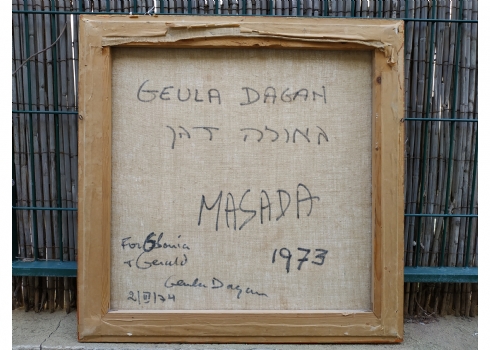 GEULA DAGAN
גאולה דגן
MASADA
For Gloria
& Gerald
1973
Geula Dagan
2/VI/74